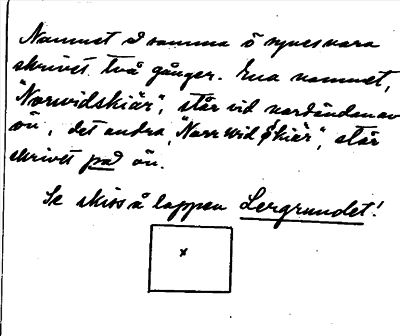 Namnet å samma ö synes vara
skrivet två gånger. Ena namnet,
"Norwidskiär", står vid nordändan av
ön, det andra, "Norrwid Skiär", står
skrivet på ön.
Se skiss å lappen Lergrundet!
x